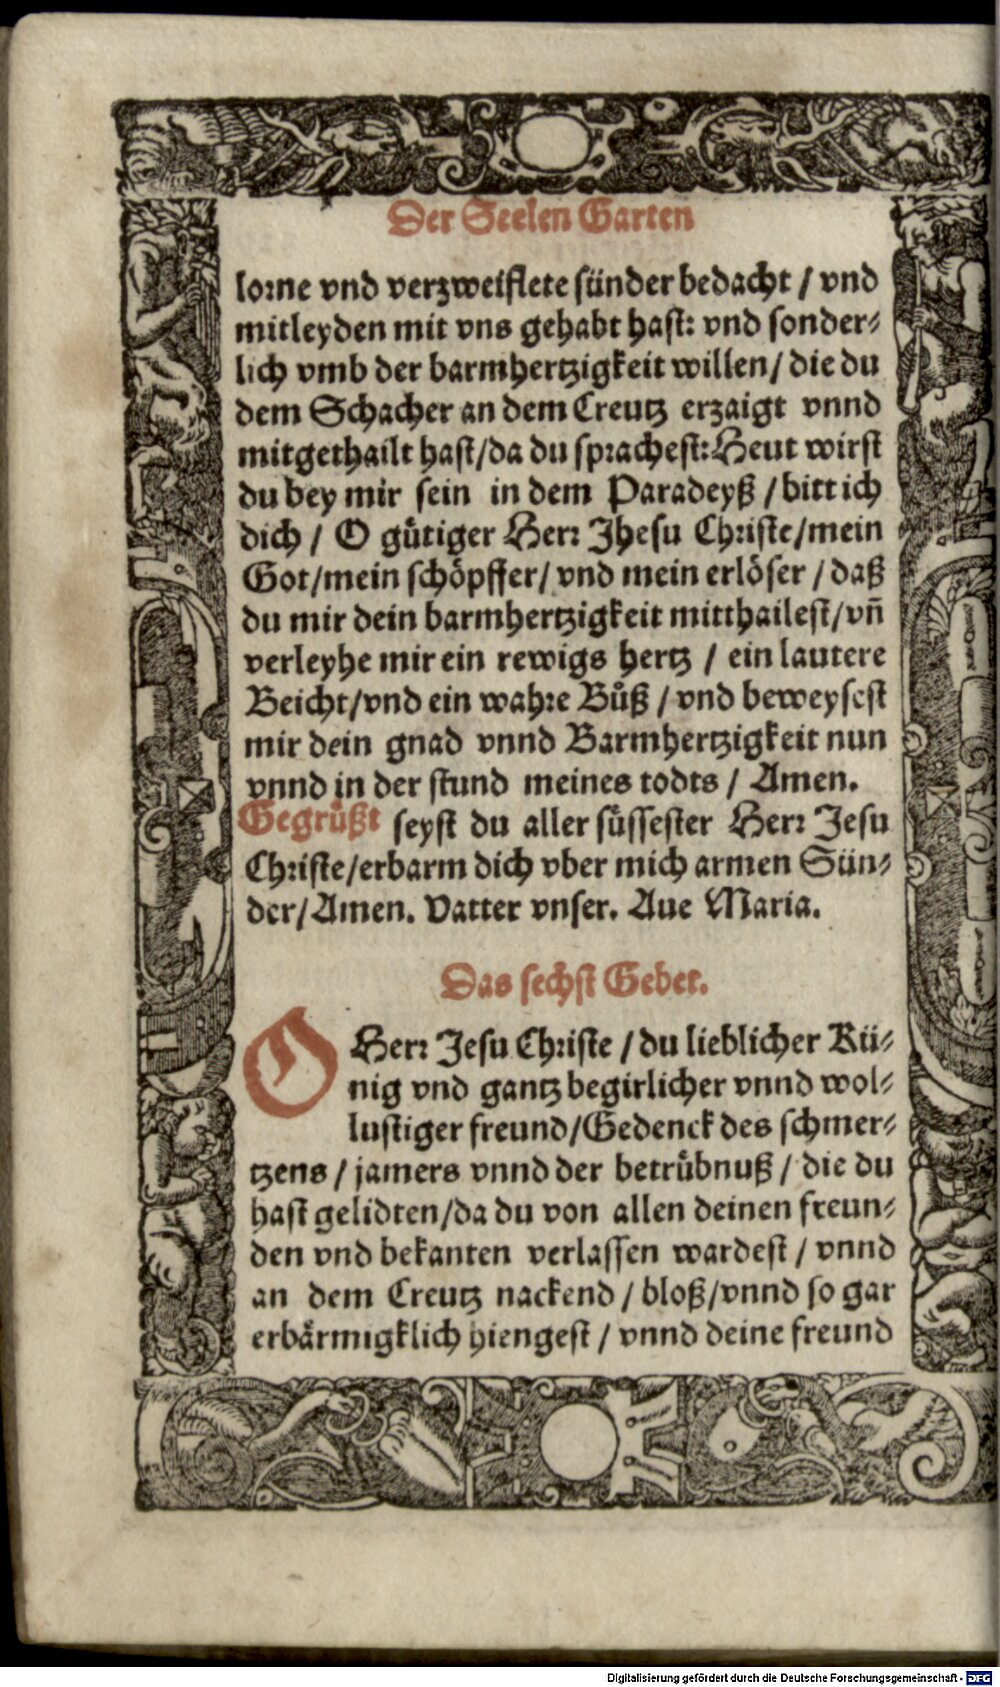 Der Seelen Garten
lorne vnd verzweiflete sünder bedacht / vnd
mitleyden mit vns gehabt hast: vnd sonder⸗
lich vmb der barmhertzigkeit willen / die du
dem Schacher an dem Creutz erzaigt vnnd
mitgethailt hast/da du sprachest: Heut wirst
du bey mir sein in dem Paradeyß / bitt ich
dich / O gůtiger Herr Jhesu Christe/mein
Got/mein schöpffer/ vnd mein erlöser / daß
du mir dein barmhertzigkeit mitthailest/vñ
verleyhe mir ein rewigs hertz / ein lautere
Beicht/vnd ein wahre Bůß / vnd beweysest
mir dein gnad vnnd Barmhertzigkeit nun
vnnd in der stund meines todts / Amen.
Gegrůßt seyst du aller süssester Herr Jesu
Christe/erbarm dich vber mich armen Sün⸗
der/Amen. Vatter vnser. Aue Maria.
Das sechst Gebet.
O Herr Jesu Christe / du lieblicher Kü⸗
nig vnd gantz begirlicher vnnd wol⸗
lustiger freund/Gedenck des schmer⸗
tzens / jamers vnnd der betrübnuß / die du
hast gelidten/da du von allen deinen freun⸗
den vnd bekanten verlassen wardest / vnnd
an dem Creutz nackend / bloß/vnnd so gar
erbärmigklich hiengest / vnnd deine freund
Digitalisierung gefördert durch die Deutsche Forschungsgemeinschaft - DFG